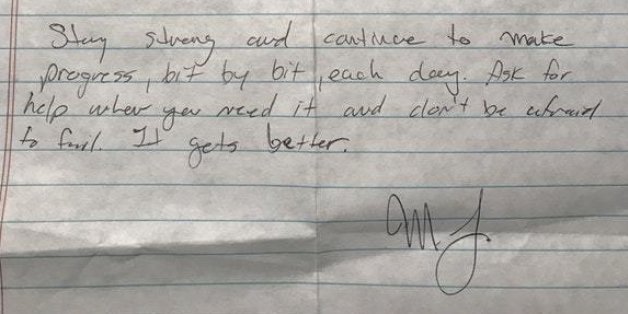 Stay strong and continue to make
progress, bit by bit, each day. Ask for
help when you need it and don't be afraid
to fail. It gets better.
MJ